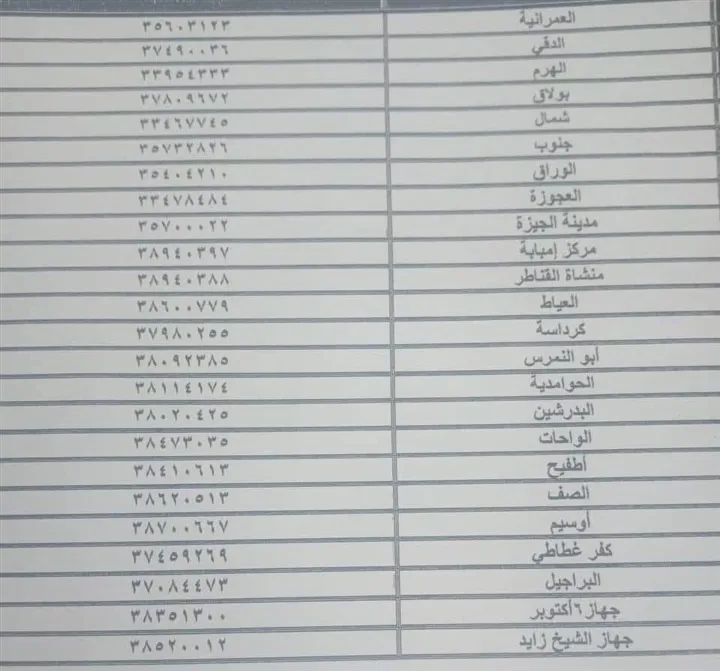 العمرانية ٣٥٦٠٣١٢٣
الدقي ٣٧٤٩٠٠٣٦
الهرم ٣٣٩٥٤٣٣٣
بولاق ٣٧٨٠٩٦٧٢
شمال ٣٣٤٦٧٧٤٥
جنوب ٣٥٧٣٢٨٢٦
الوراق ٣٥٤٠٤٢١٠
العجوزة ٣٣٤٧٨٤٨٤
مدينة الجيزة ٣٥٧٠٠٠٢٢
مركز إمبابة ٣٨٩٤٠٣٩٧
منشاة القناطر ٣٨٩٤٠٣٨٨
العياط ٣٨٦٠٠٧٧٩
كرداسة ٣٧٩٨٠٢٥٥
أبو النمرس ٣٨٠٩٢٣٨٥
الحوامدية ٣٨١١٤١٧٤
البدرشين ٣٨٠٢٠٤٢٥
الواحات ٣٨٤٧٣٠٣٥
أطفيح ٣٨٤١٠٦١٣
الصف ٣٨٦٢٠٥١٣
أوسيم ٣٨٧٠٠٦٦٧
كفر غطاطي ٣٧٤٥٩٢٦٩
البراجيل ٣٧٠٨٤٤٧٣
جهاز ٦أكتوبر ٣٨٣٥١٣٠٠
جهاز الشيخ زايد ٣٨٥٢٠٠١٢